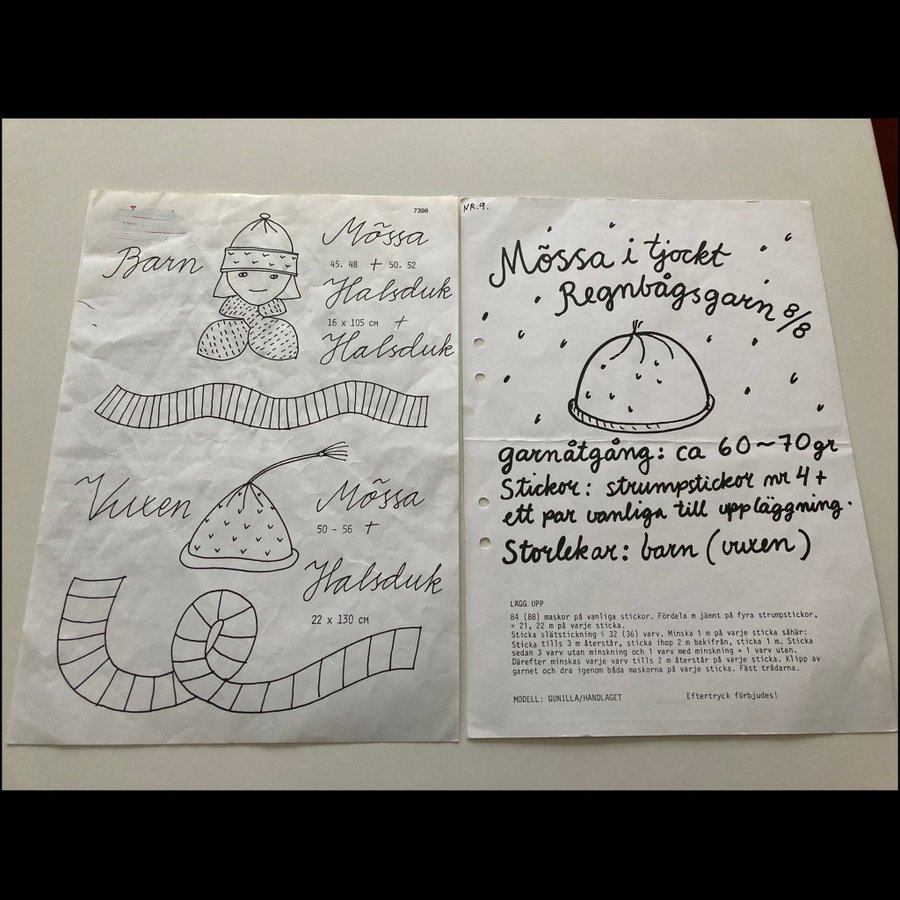 7398
Barn
Mössa
45. 48 + 50. 52
Halsduk
16 x 105 CM +
Halsduk
Vuxen
Mössa
50 - 56 +
Halsduk
22 x 130 CM
NR.9.
Mössa i tjockt
Regnbågsgarn 8/8
garnåtgång: ca 60~70gr
Stickor: strumpstickor nr 4 +
ett par vanliga till uppläggning.
Storlekar: barn (vuxen)
LÄGG UPP
84 (88) maskor på vanliga stickor. Fördela m jämnt på fyra strumpstickor,
= 21, 22 m på varje sticka.
Sticka slätstickning i 32 (36) varv. Minska 1 m på varje sticka såhär:
Sticka tills 3 m återstår, sticka ihop 2 m bakifrån, sticka 1 m. Sticka
sedan 3 varv utan minskning och 1 varv med minskning + 1 varv utan.
Därefter minskas varje varv tills 2 m återstår på varje sticka. Klipp av
garnet och dra igenom båda maskorna på varje sticka. Fäst trådarna.
MODELL: GUNILLA/HANDLAGET
Eftertryck förbjudes!